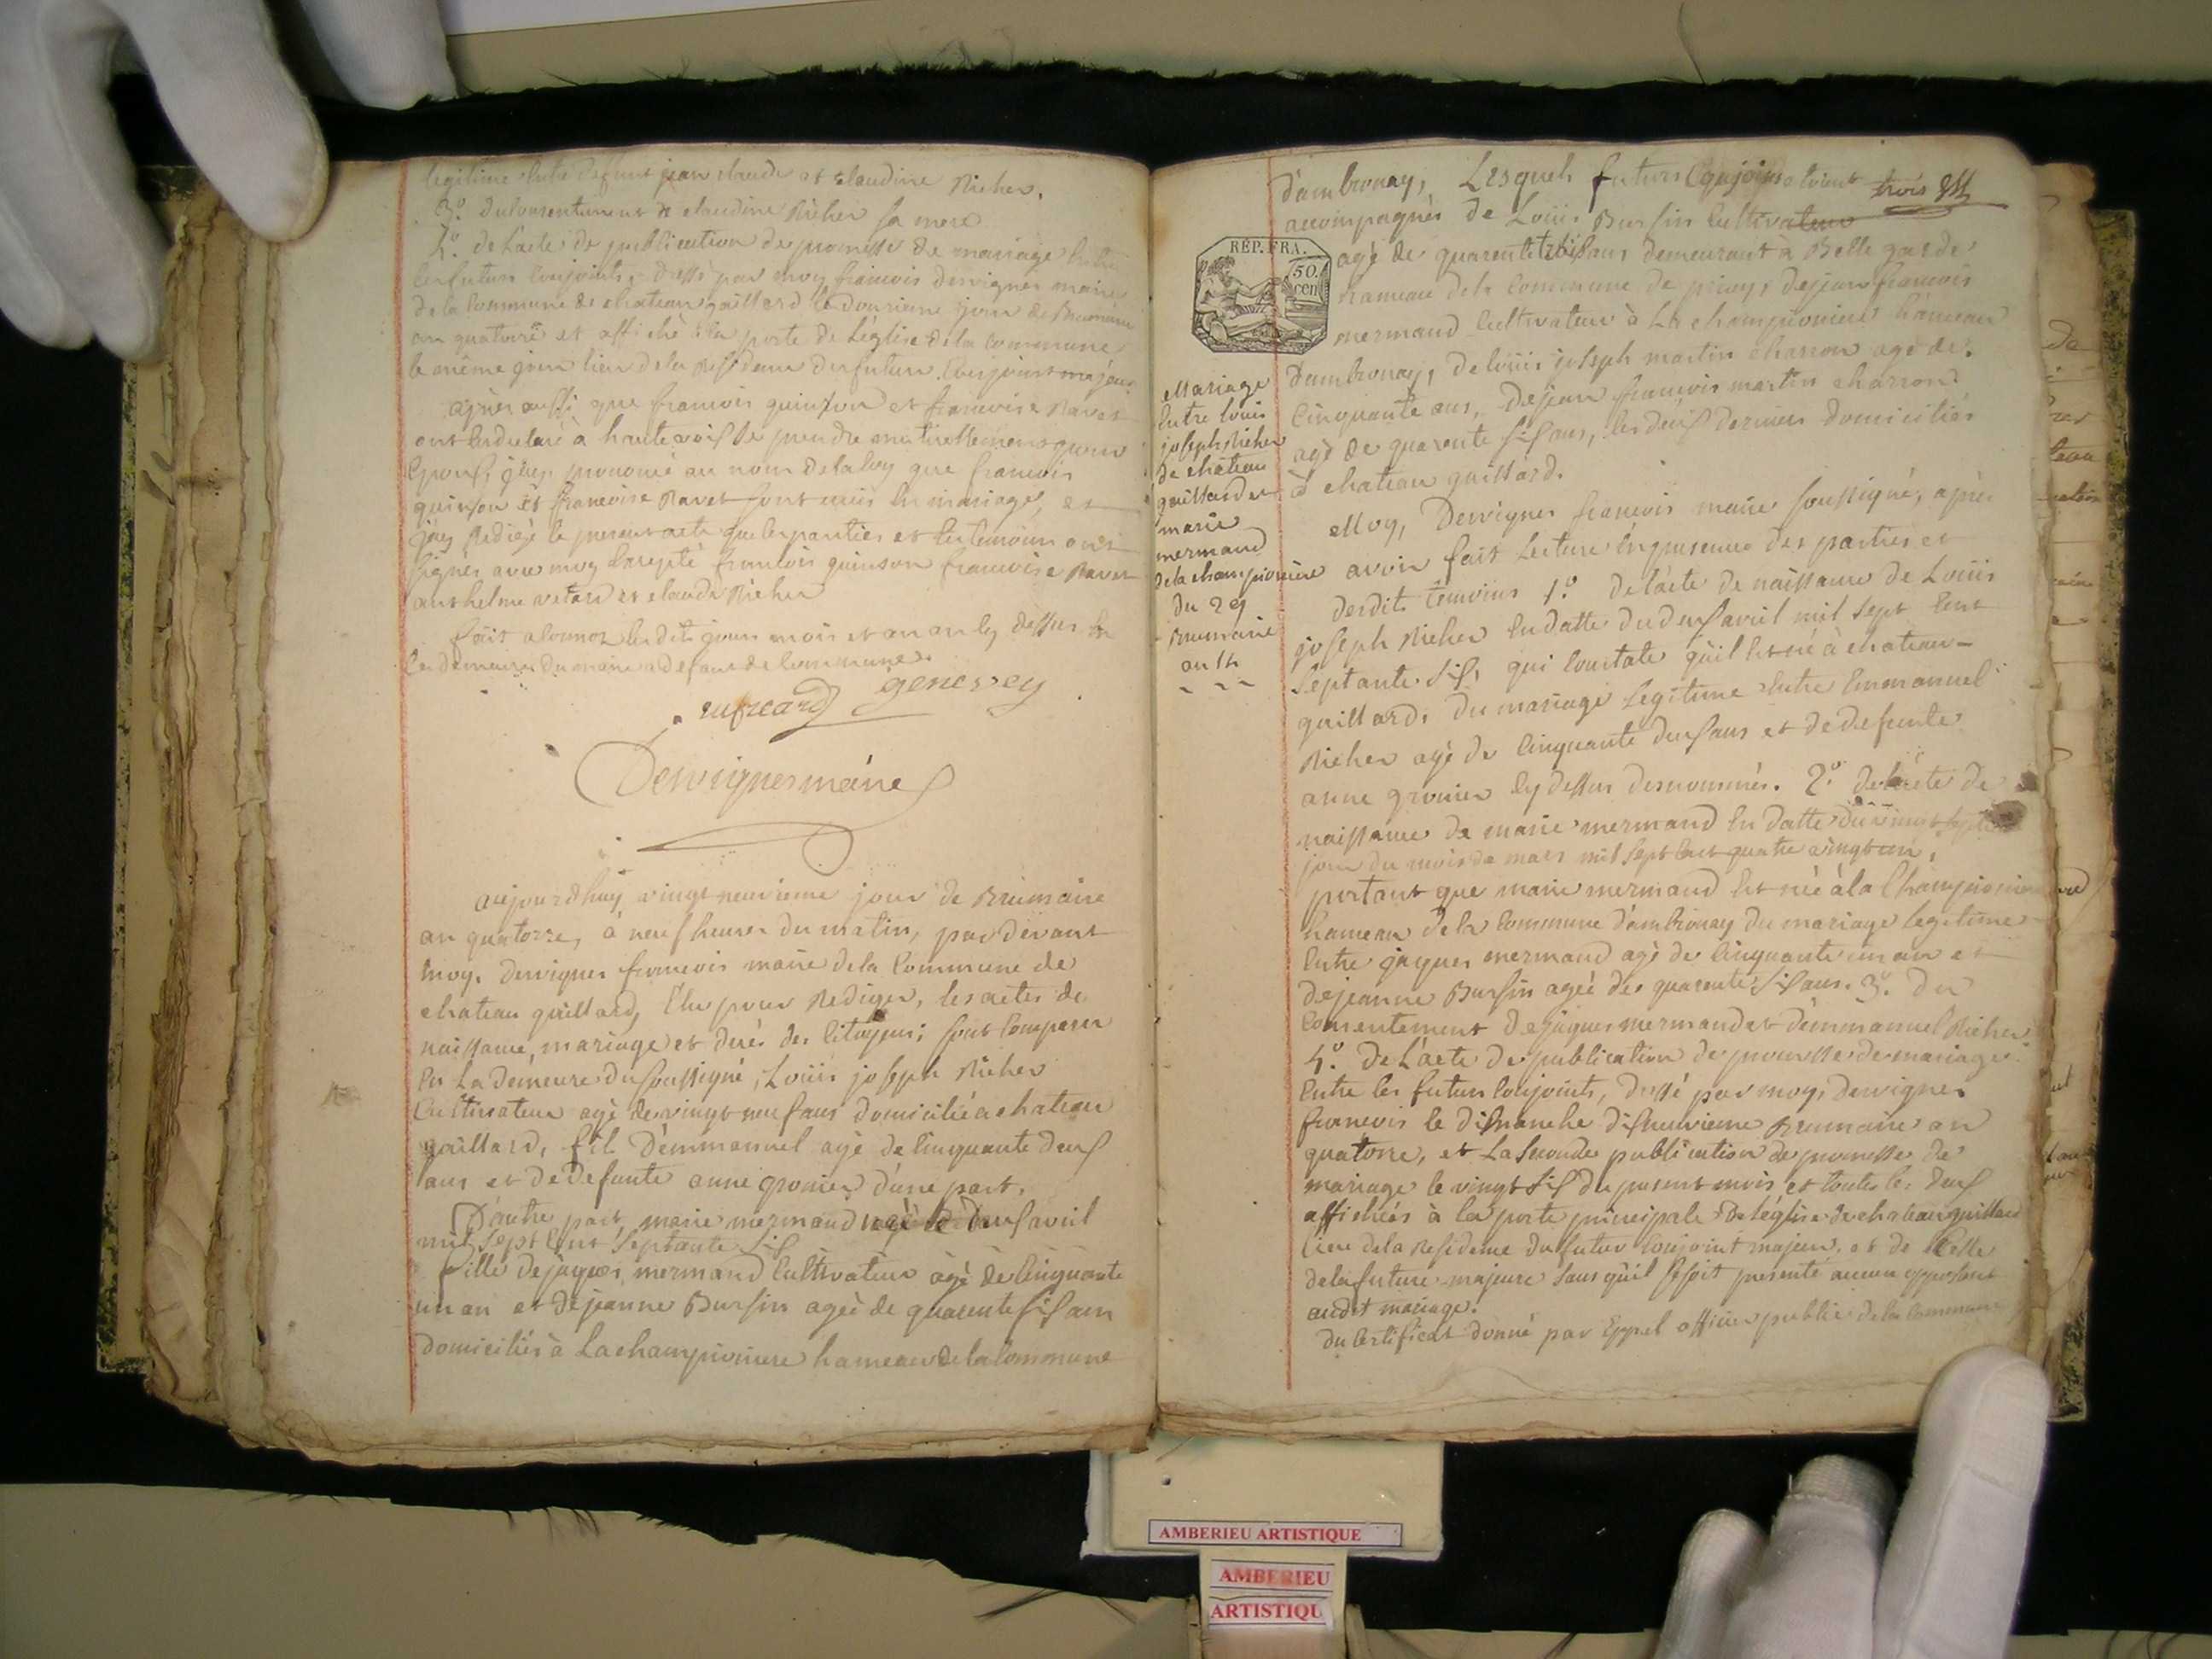 legitime entre defunt jean claude et claudine Richer.
3.° du consentement de claudine Richer sa mere
4.° de l'acte de publication de promesse de mariage entre
les futurs conjoints, dressé par moy francois dervignes maire
de la commune de chateau gaillard le douzieme jour de Brumaire
an quatorze et affiché a la porte de l'église de la commune
le même jour lieu de la residence des futurs conjoints majeurs
après aussi que francois quinson et francoise Ravet
ont eu declaré à haute voix se prendre mutuellement pour
epoux, j'ay prononcé au nom de la loy que francois
quinson et francoise Ravet sont unis en mariage, et
j'ay redigé le present acte que les parties et les temoins ont
signés avec moy excepté francois quinson francoise Ravet
anthelme vetard et claude Richer
fait a lesdits jour mois et an cy dessus en
la demeure du maire a defaut de commune.
genevey
Dervignes maire
aujourdhuy vingt neuvieme jour de Brumaire
an quatorze, à neuf heures du matin, par devant
moy. dervignes francois maire de la commune de
chateau gaillard, élu pour rediger, les actes de
naissance, mariage et decès des citoyens; sont comparu
en la demeure du soussigné, Louis joseph Richer
cultivateur agé de vingt neuf ans domicilié a chateau
gaillard, fil d'emmanuel agé de cinquante deux
ans et de defunte anne gronier d'une part.
D'autre part marie mermand deux avril
mil sept cent septante six
fille de jaques mermand cultivateur agé de cinquante
un an et de jeanne Bursin ageé de quarente six ans
domiciliés à la championiere hameau de la commune
trois
d'ambronay, Lesquels futurs conjoints etoient
accompagnés de Louis Bursin cultivateur
RÉP. FRA.
50.
cen
agé de quarente trois ans demeurant à Belle garde
hameau de la commune de priay, de jean francois
mermand cultivateur à la championiere hameau
d'ambronay, de louis joseph martin charron agé de
cinquante ans, de jean francois martin charron
agé de quarente six ans, les deux derniers domiciliés
à chateau gaillard.
Mariage
entre louis
joseph Richer
de chateau
gaillard et
marie
mermand
de la championiere
du 29
Brumaire
an 14
Moy, Dervignes francois maire soussigné, après
avoir fait lecture en presence des parties et
desdits temoins 1.° de l'acte de naissance de Louis
joseph Richer en datte du deux avril mil sept cent
septante six, qui constate qu'il est né à chateau-
gaillard, du mariage legitime entre emmanuel
Richer agé de cinquante deux ans et de defunte
anne gronier cy dessus denommés. 2.° de l'acte de
naissance de marie mermand en datte du vingt sept
jour du mois de mars mil sept cent quatre vingt un,
portant que marie mermand est née à la championiere
hameau de la commune d'ambronay du mariage legitime
entre jaques mermand agé de cinquante un an et
de jeanne Bursin ageé de quarente six ans. 3.° du
consentement de jaques mermand et d'emmanuel Richer
4.° de l'acte de publication de promesse de mariage
entre les futurs conjoints, dressé par moy, dervignes
francois le dimanche dixneuvieme Brumaire an
quatorze, et la seconde publication de promesse de
mariage le vingt six du present mois et toutes les deux
affichées à la porte principale de l'église de chateau gaillard
lieu de la residence du futur conjoint majeur, et de celle
de la future majeure sans qu'il se soit presenté aucun opposant
audit mariage.
du certificat donné par Eppel officier public de la commune
AMBERIEU ARTISTIQUE
AMBERIEU
ARTISTIQU